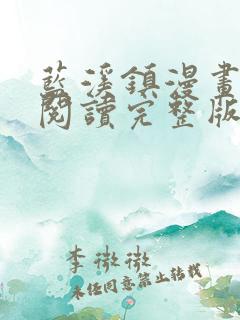 藍溪鎮漫畫
閱讀完整版
李微微
未经同意禁止转载